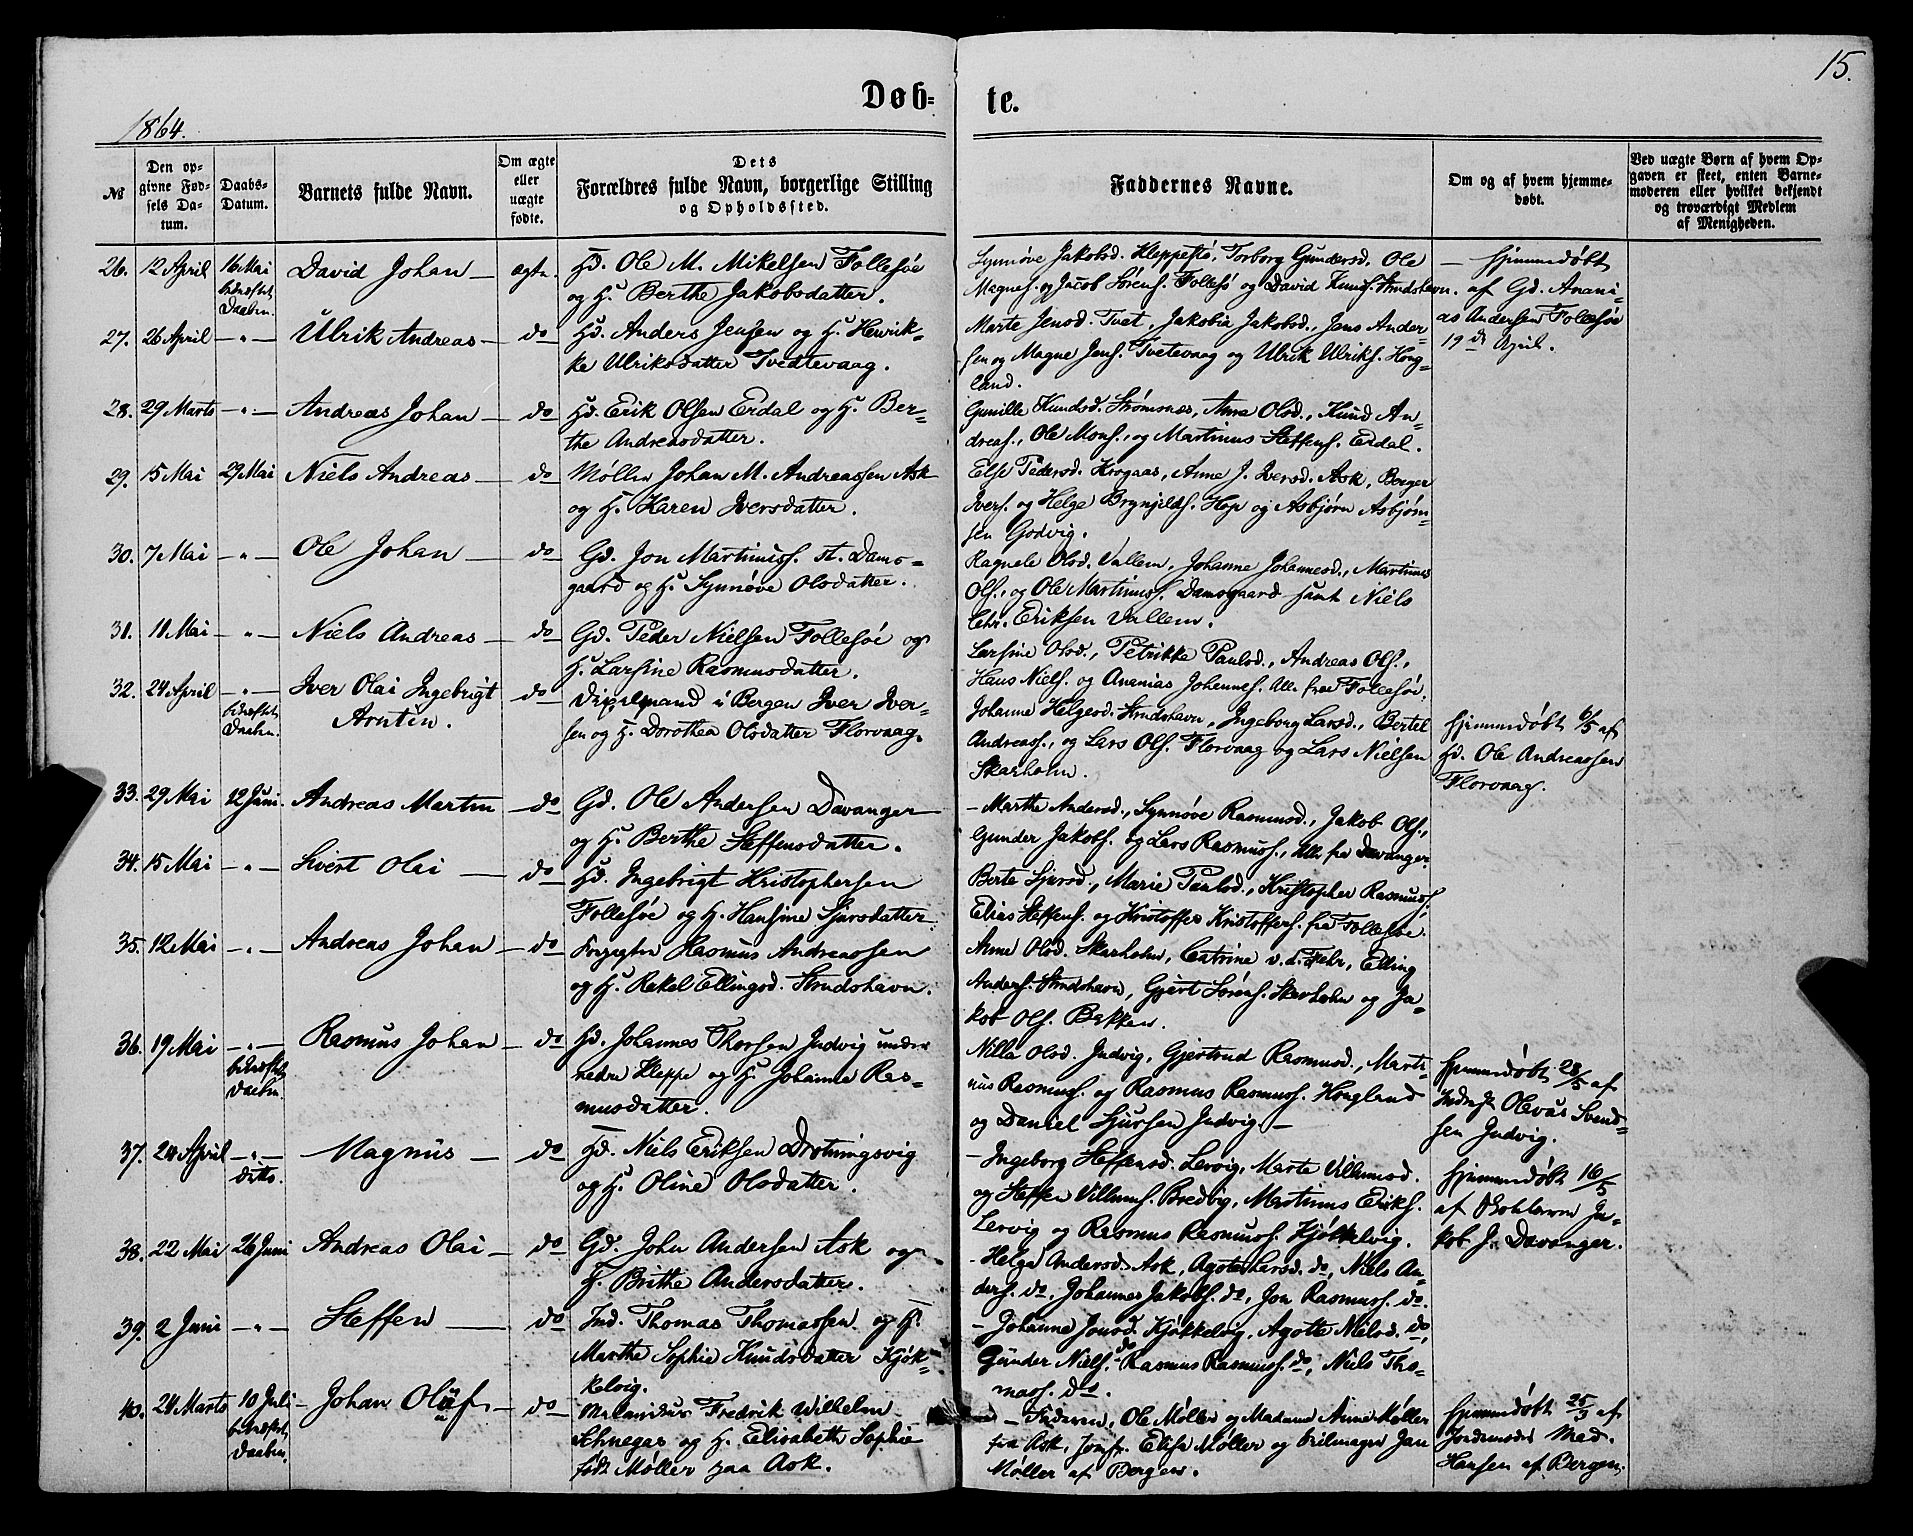 15.
Døb- te.
1864.
№
Den opgivne Fødsels Datum.
Daabs-Datum.
Barnets fulde Navn.
Om ægte eller uægte fødte.
Dets Forældres fulde Navn, borgerlige Stilling og Opholdssted.
Faddernes Navne.
Om og af hvem hjemmedøbt.
Ved uægte Børn af hvem Opgaven er skeet, enten Barnemoderen eller hvilket bekjendt og troværdigt Medlem af Menigheden.
26. 12 April 16 Mai David Johan — ægte Hd. Ole M. Mikelsen Follesøe
bekræftet Daaben. og H. Berthe Jakobsdatter.
Synnøve Jakobsd. Kleppestø, Torborg Gundersd. Ole
Magnes. og Jacob Sørens. Follesø og David Knuds. Strudshavn.
— Hjemmedøbt
af Gd. Anani-
as Andersen Follesøe
19de April.
27. 26 April — " — Ulrik Andreas — do Hd. Anders Jensen og H. Henrik-
ke Ulriksdatter Tvedtevaag.
Marte Jensd. Tvet, Jakobia Jakobsd., Jens Ander-
sen og Magne Jens. Tvetevaag og Ulrik Ulriks. Hog-
land.
28. 29 Marts — " — Andreas Johan — do Hd. Erik Olsen Erdal og H. Ber-
the Andreasdatter.
Gunilla Knudsd. Strømsnæs, Anna Olsd., Knud An-
dreas., Ole Mons., og Martinus Steffens. Erdal.
29. 15 Mai 29 Mai Niels Andreas — do Møller Johan M. Andreassen Ask
og H. Karen Iversdatter.
Else Pedersd. Krogaas, Anne J. Iversd. Ask, Berger
Ivers. og Helge Brynjelds. Hop og Asbjørn Asbjørn-
sen Godvig.
30. 7 Mai — " — Ole Johan — do Gd. Jon Martinuss. st. Dams-
gaard og H. Synnøve Olsdatter.
Ragnele Olsd. Vallem, Johanne Johannesd., Martinus
Ols., og Ole Martinuss. Damsgaard samt Niels
Chr. Eriksen Vallem.
31. 11 Mai — " — Niels Andreas — do Gd. Peder Nielsen Follesøe og
H. Larsine Rasmusdatter.
Larsine Olsd., Petrikke Paulsd., Andreas Ols.,
Hans Niels. og Ananias Johannes. Alle fra Follesøe.
32. 24 April — " — Iver Olai Ingebrigt do
bekræftet Daaben. Arntin.
i Bergen Iver Iver-
sen og H. Dorothea Olsdatter Florvaag.
Johanne Helgesd. Strudshavn, Ingeborg Larsd., Bertel
Andreass., og Lars Ols. Florvaag og Lars Nielsen
Skarholm.
Hjemmedøbt 6/5 af
Hd. Ole Andreassen
Florvaag.
33. 29 Mai 12 Juni. Andreas Martin — do Gd. Ole Andersen Davanger
og H. Berthe Steffensdatter.
— Marthe Andersd., Synnøve Rasmusd., Jakob Ols.,
Gunder Jakobs. og Lars Rasmuss., Alle fra Davanger.
34. 15 Mai — " — Sivert Olai — do Hd. Ingebrigt Kristophersen
Follesøe og H. Hansine Sjursdatter.
Berte Sjursd., Marie Paulsd., Kristopher Rasmuss.
Elias Steffens. og Kristoffer Kristoffers. fra Follesøe.
35. 12 Mai — " — Andreas Johan — do Rasmus Andreassen
og H. Rakel Ellingsd. Strudshavn.
Anne Olsd. Skarholm, Catrine v. d. Fehr, Elling
Anders. Strudshavn, Gjert Sørens. Skarholm og Ja-
kob Ols. Bakken.
36. 19 Mai — " — Rasmus Johan — do Hd. Johannes Thorsen Indvig under
bekræftet Daaben. nedre Kleppe og H. Johanne Ras-
musdatter.
Nilla Olsd. Indvig, Gjertrud Rasmusd., Marti-
nus Rasmuss. og Rasmus Rasmuss. Hougland
og Daniel Sjursen Indvig —
Hjemmedøbt 28/5 af
Inderst Olevus Svend-
sen Indvig.
37. 24 April — " — Magnus — do Hd. Niels Eriksen Drotningsvig
ditto. og H. Oline Olsdatter.
— Ingeborg Steffensd. Lervig, Marte Villumsd.
og Steffen Villums. Bredvig, Martinus Eriks.
Lervig og Rasmus Rasmuss. Kjøkkelvig.
Hjemmedøbt 16/5
af Skolelærer Ja-
kob J. Davanger.
38. 22 Mai 26 Juni Andreas Olai — do Gd. John Andersen Ask og
H. Brithe Andersdatter.
— Helga Andersd. Ask, Agote Larsd. do, Niels An-
ders. do, Johannes Jakobs. do, Jon Rasmuss. do.
39. 2 Juni — " — Steffen — do Ind. Thomas Thomassen og H.
Marthe Sophie Knudsdatter Kjøk-
kelvig.
— Johanne Jonsd. Kjøkkelvig, Agotte Nilsd. do,
Gunder Niels. do Rasmus Rasmuss. do, Niels Tho-
mass. do.
40. 24 Marts 10 Juli — Johan Oluf — do Fredrik Wilhelm
bekræftet Daaben. Schnegas og H. Elisabeth Sophie
født Møller paa Ask.
— Faderen, Ole Møller og Madame Anne Møller
fra Ask, Jomf. Elise Møller og Jan
Møller af Bergen.
Hjemmedøbt 25/3 af
Jordemoder Mad.
Hansen af Bergen.